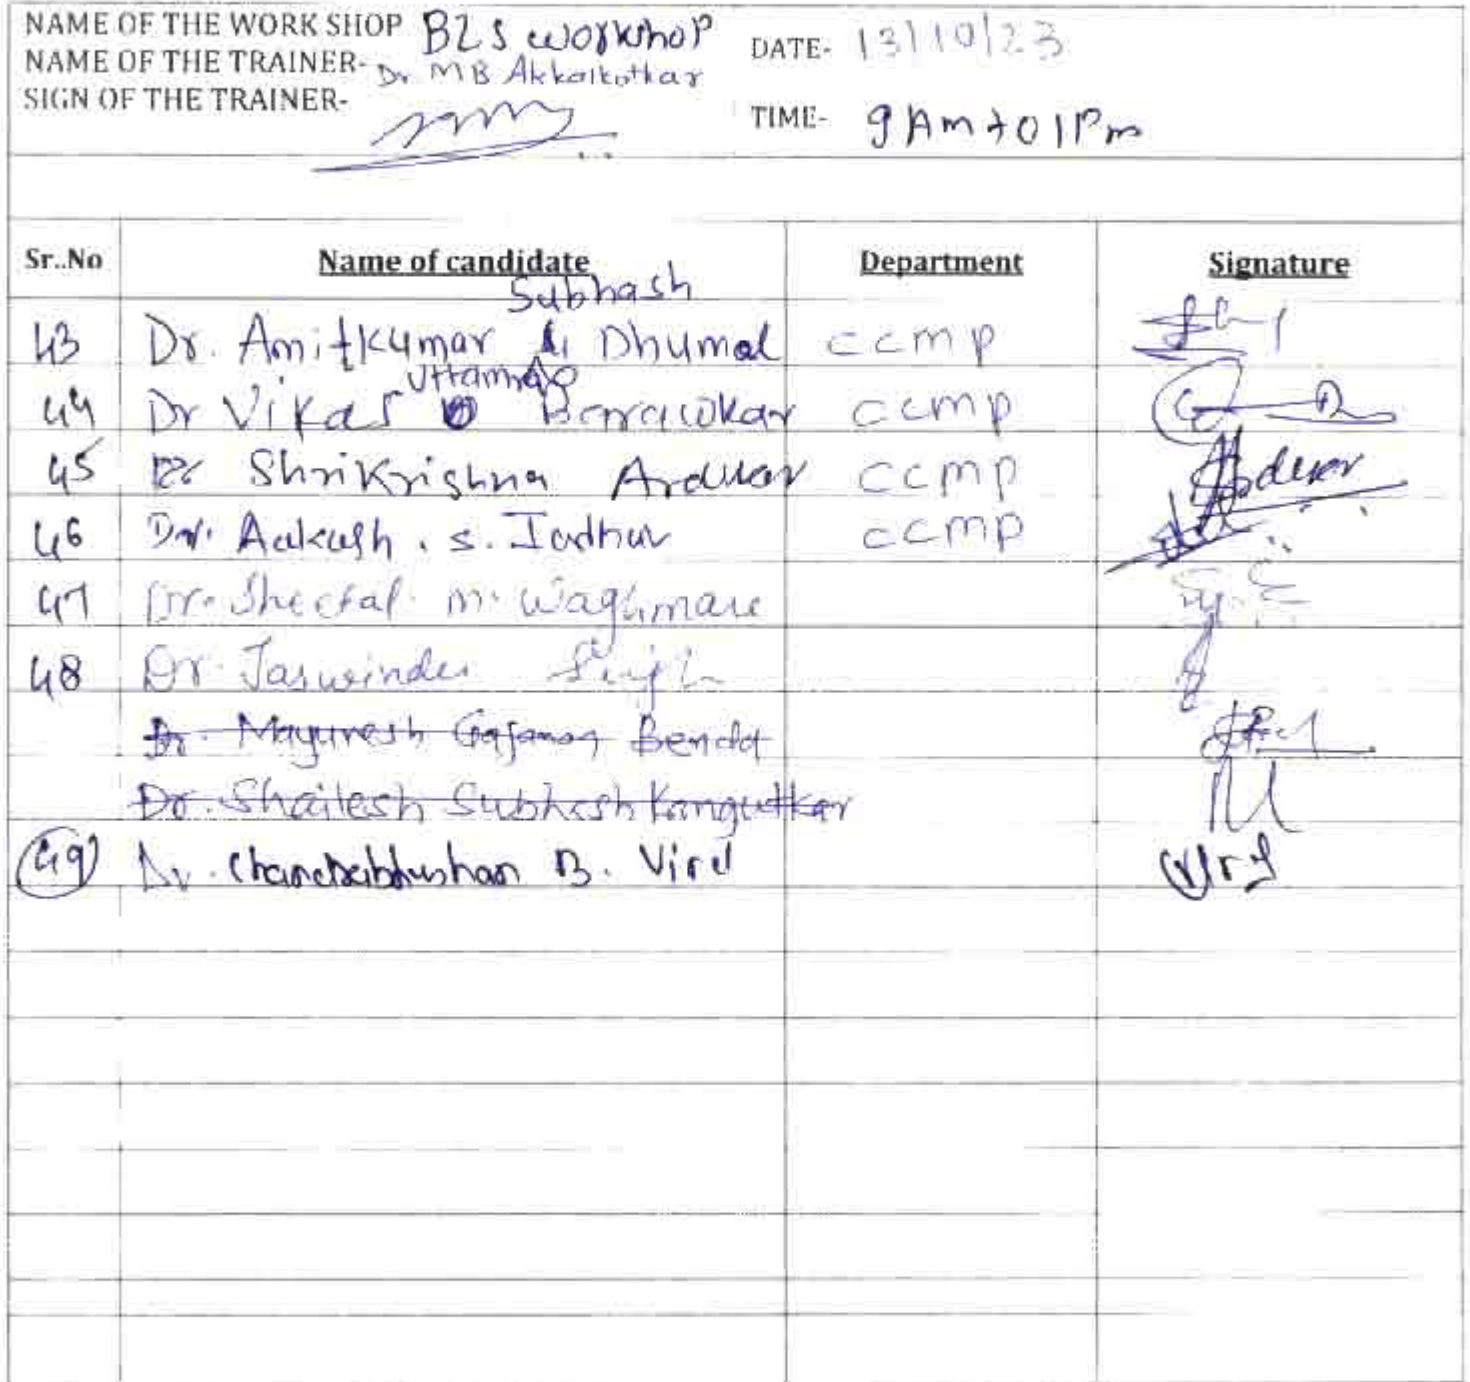 NAME OF THE WORK SHOP BLS workshop DATE- 13/10/23
NAME OF THE TRAINER- Dr MB Akkalkotkar
SIGN OF THE TRAINER- TIME- 9 Am to 1 Pm
Sr..No Name of candidate Department Signature
Subhash
43 Dr. Amitkumar Dhumal ccmp
Uttamrao
44 Dr Vikas ccmp
45 Dr Shrikrishna Ardwar ccmp Ardwar
46 Dr. Aakash . S. Jadhav ccmp
47 Dr. Sheetal m. Waghmare
48 Dr. Jaswinder Singh
Dr. Mayuresh Gajanan Bendal
Dr. Shailesh Subhash Kangutkar
49 Dr. Chandrabhushan B. Virel